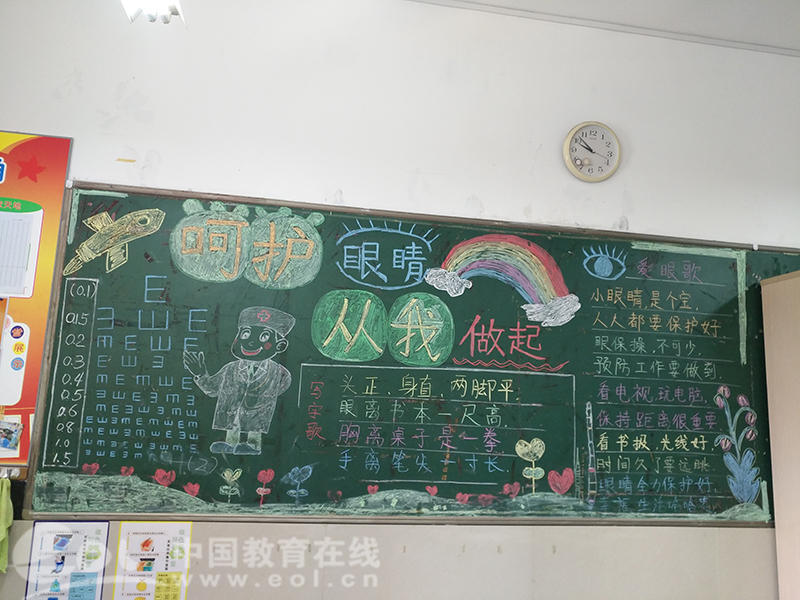 呵护
眼睛
从我
做起
(0.1)
0.15
0.2
0.3
0.4
0.5
0.6
0.8
1.0
1.5
写字歌
头正、身直、两脚平,
眼离书本一尺高,
胸离桌子是一拳,
手离笔尖一寸长,
爱眼歌
小眼睛是个宝,
人人都要保护好,
眼保操,不可少,
预防工作要做到,
看电视,玩电脑,
保持距离很重要,
看书报,光线好,
时间久了要远眺,
眼睛全力保护好,
中国教育在线
www.eol.cn